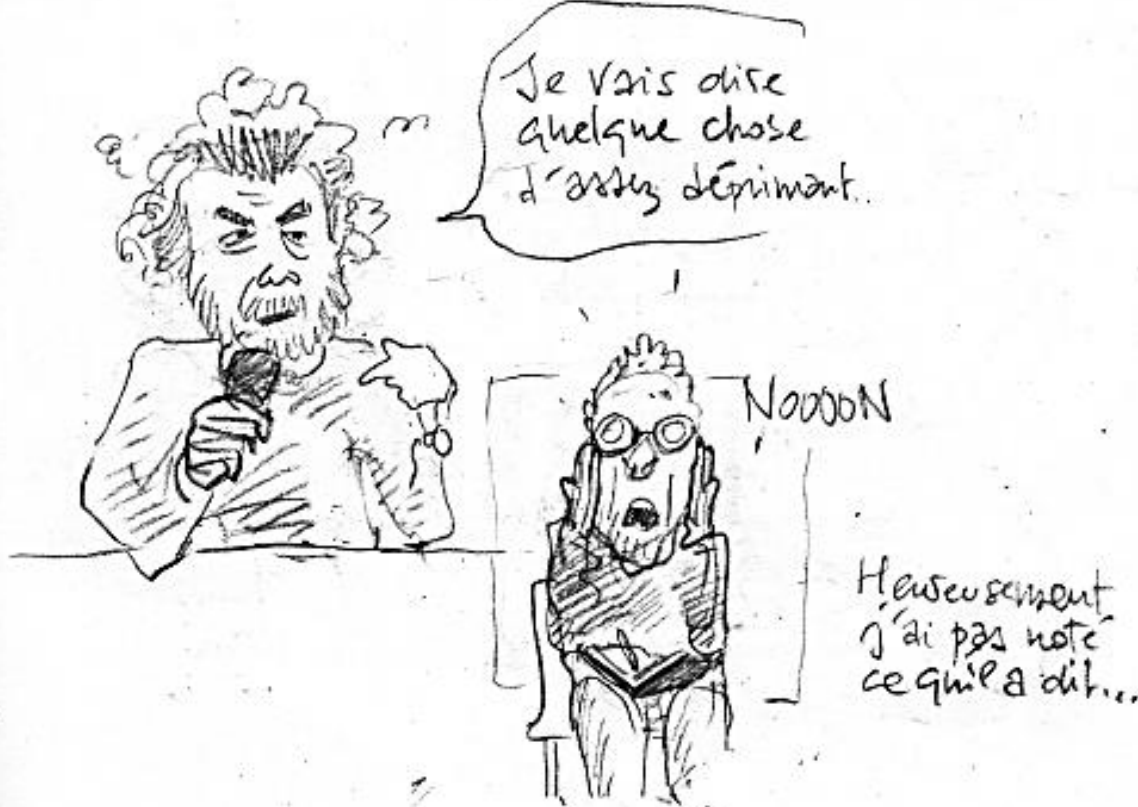 Je vais dire
quelque chose
d'assez déprimant..
NOOOON
Heureusement
j'ai pas noté
ce qu'il a dit...